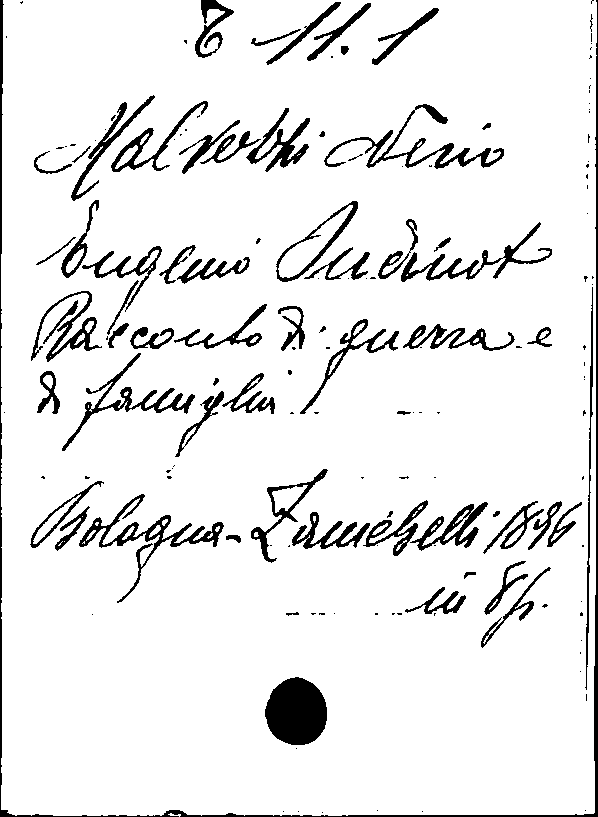 E 11. 1
Malvezzi Nerio
Eugenio Gudinot
Racconto di guerra e
di famiglia
Bologna - Zanichelli 1896
in 8p.